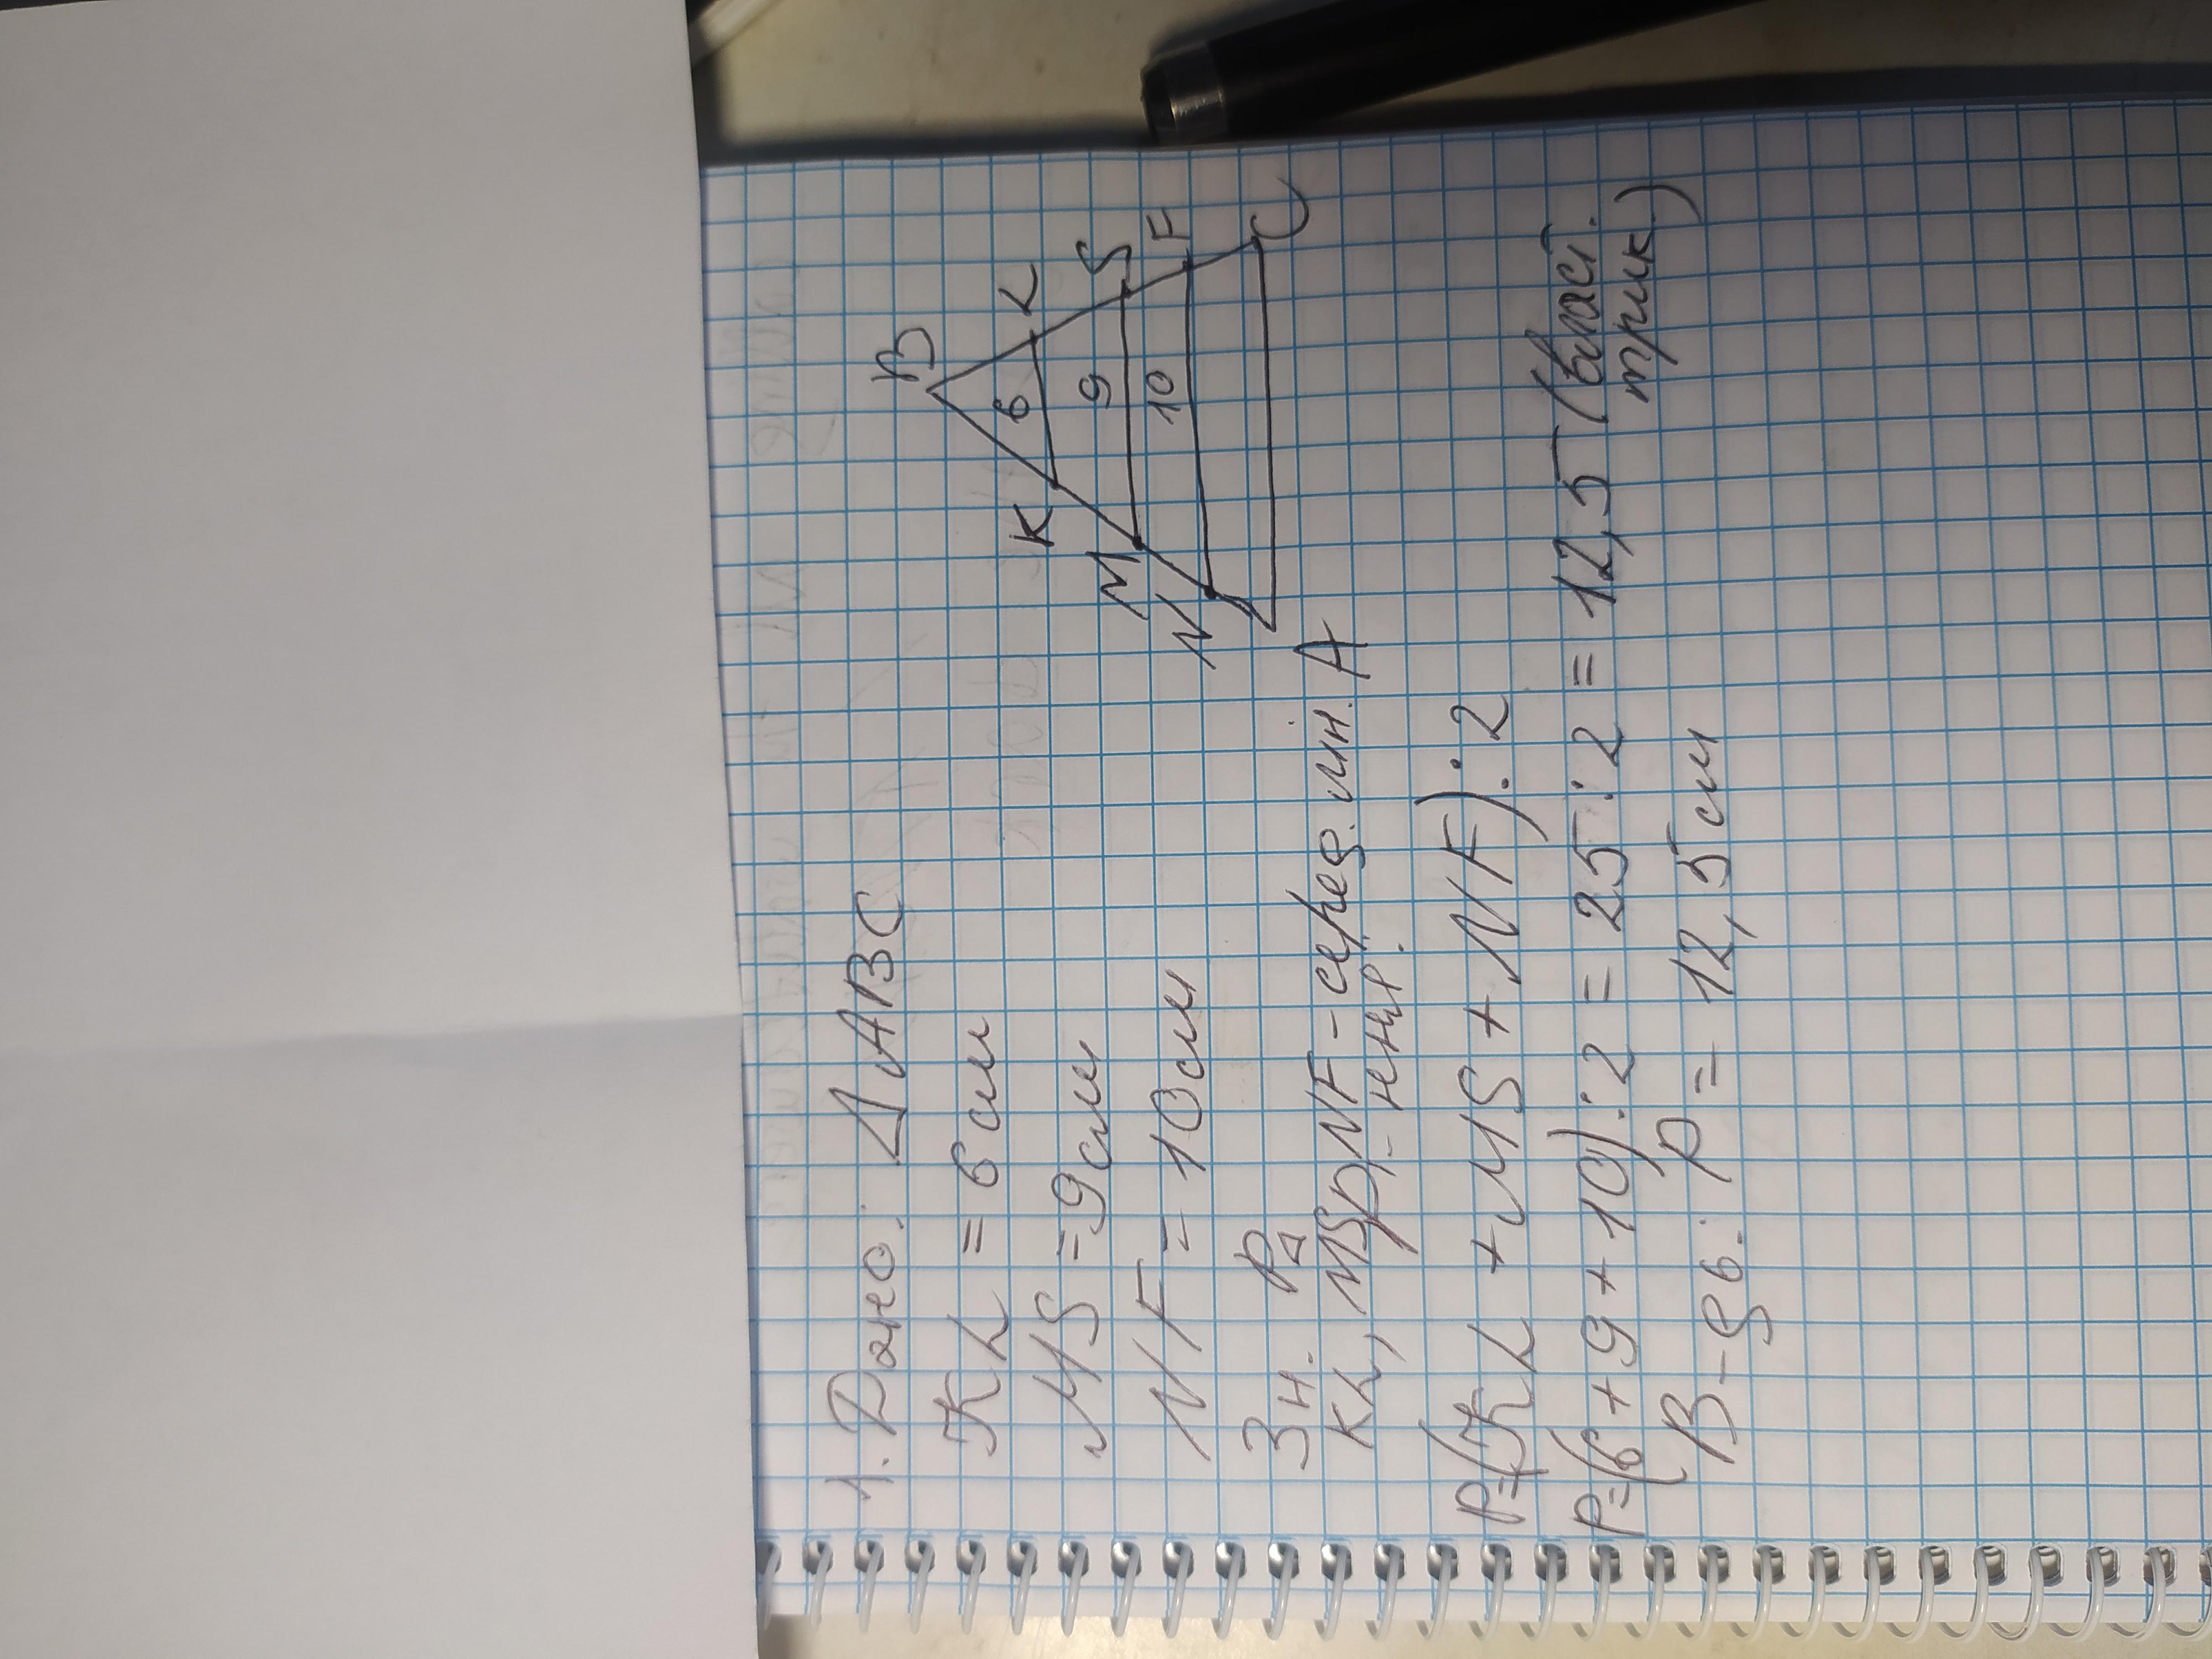 1. Дано: Δ ABC
KL = 6 см
MS = 9 см
NF = 10 см
Зн. P△
KL, MS, NF - серед. лін.
P=(KL + MS + NF) : 2
P=(6 + 9 + 10) : 2 = 25 : 2 = 12,5 (власт.
трик.)
В-дь: P = 12,5 см
B
K
6
K
M
9
S
N
10
F
A
C